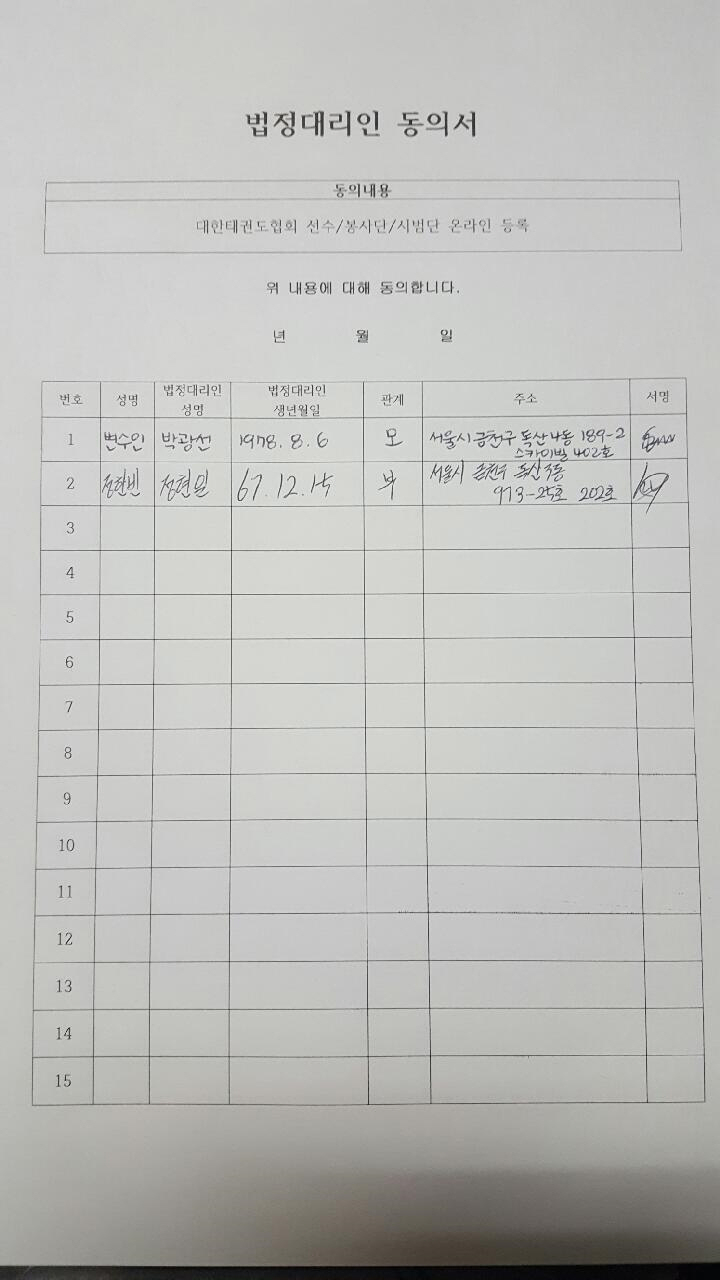 법정대리인 동의서
동의내용
대한태권도협회 선수/봉사단/시범단 온라인 등록
위 내용에 대해 동의합니다.
년 월 일
번호 성명 법정대리인 성명 법정대리인 생년월일 관계 주소 서명
1 변수인 박광선 1978. 8. 6 모 서울시 금천구 독산4동 189-2
스카이빌 402호
2 정한빈 정현일 67. 12. 15 부 서울시 금천구 독산동
973-25호 202호
3
4
5
6
7
8
9
10
11
12
13
14
15